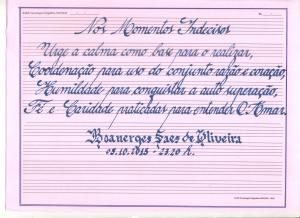 Nos Momentos Indecisos
Urge a calma como base para o realizar,
Coordenação para uso do conjunto razão e coração,
Humildade para conquistar a auto superação,
Fé e Caridade praticadas para entender O Amar.
Moanerges Saes de Oliveira
03.10.2013 - 23:20 h.